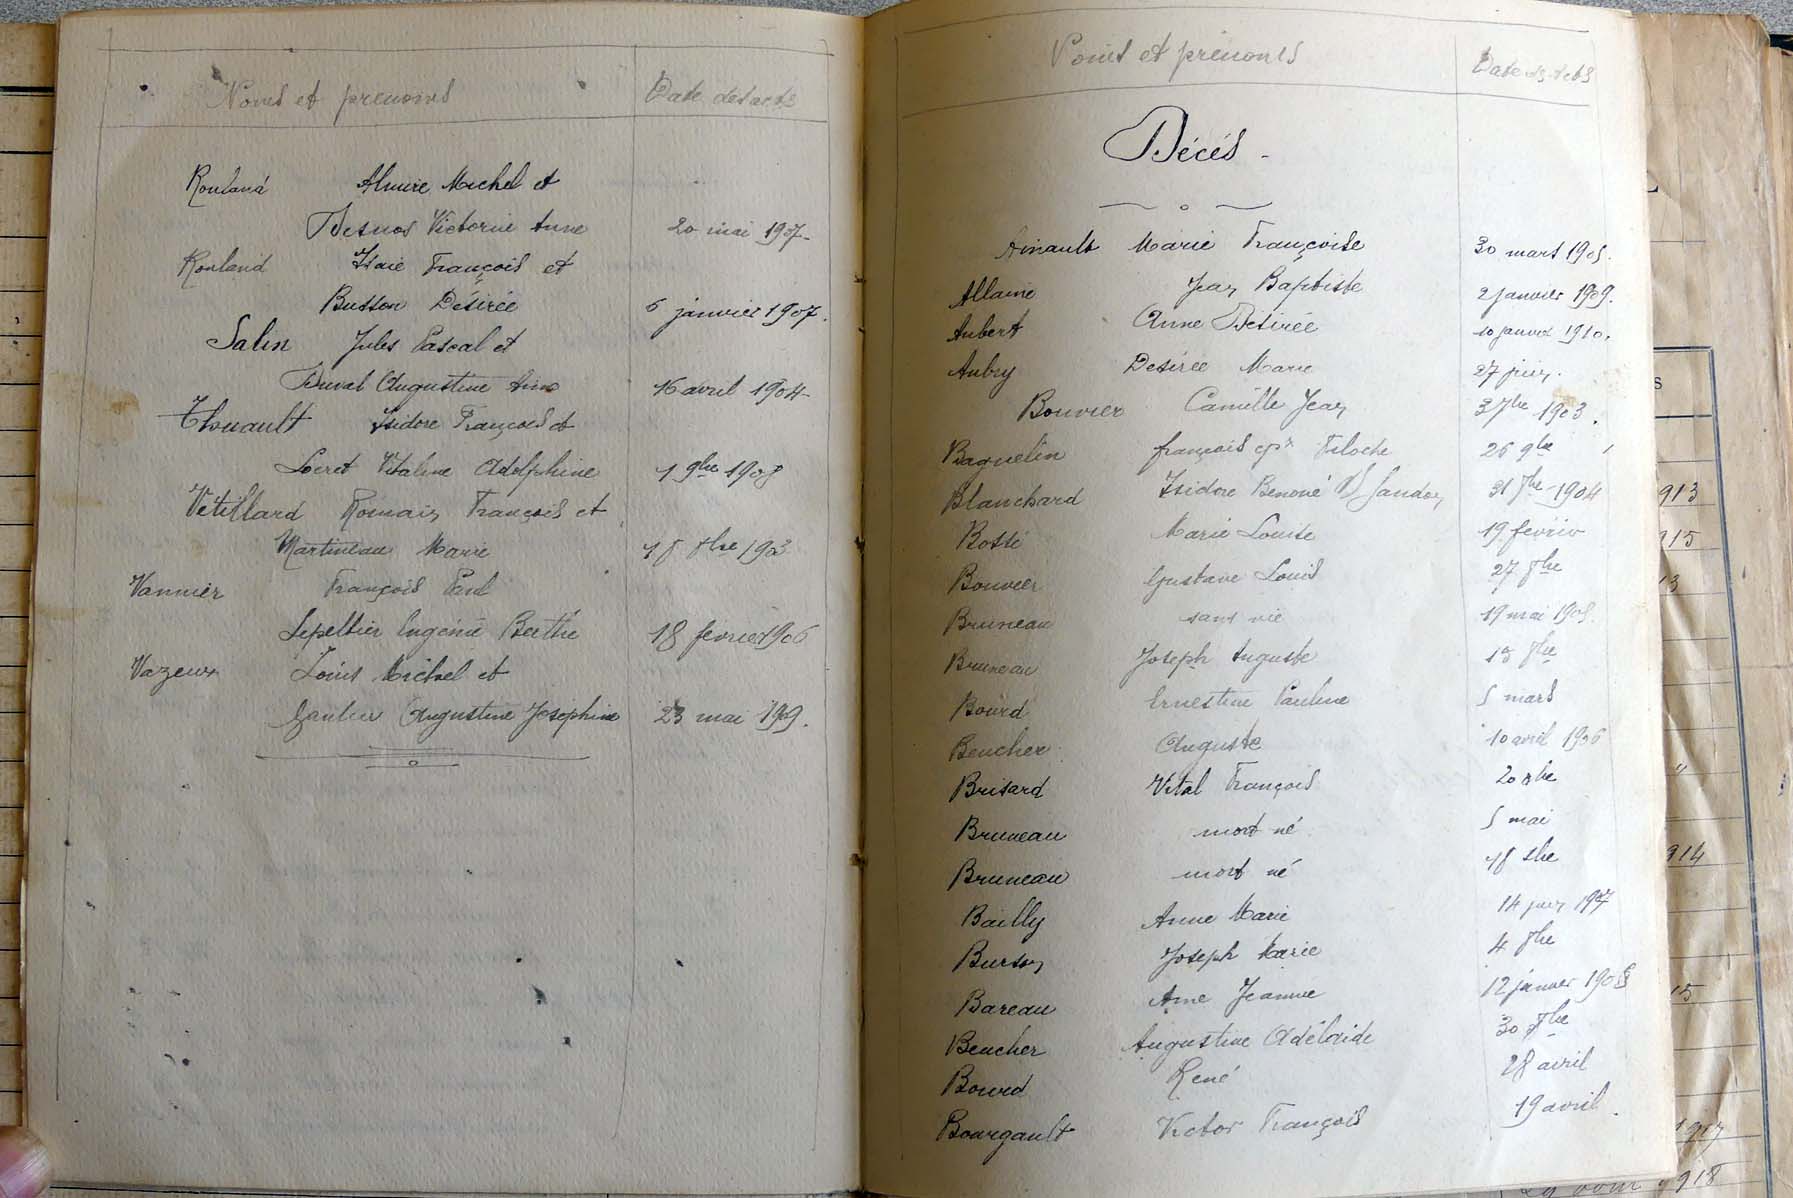 Noms et prénoms Date des acts
Rouland Almire Michel et
Desnos Victorine Anne 20 mai 1907-
Rouland Isaie François et
Busson Désirée 6 janvier 1907.
Salin Jules Pascal et
Duval Augustine 16 avril 1904-
Thouault Isidore François et
Loret Vitaline Adolphine 1 9bre 1908
Vétillard Romain François et
Martineau Marie 18 8bre 1903
Vannier François Paul
Lepeltier Eugénie Berthe 18 fevrier 1906
Vazeux Louis Michel et
Gautier Augustine Joséphine 23 mai 1909.
Noms et prénoms Date des acts
Décés -
Ainault Marie Françoise 30 mars 1905.
Allaine Jean Baptiste 2 janvier 1909.
Aubert Anne Désirée 10 janvier 1910.
Aubry Desirée Marie 27 juin.
Bouvier Camille Jean 3 1903.
Baguelin françois Filoche 26 9bre
Blanchard Isidore Benoné 31 1904
Marie Louise 19 fevrier
Bouvier Gustave Louis 27
Bruneau sans vie 19 mai 1905.
Bruneau Joseph Auguste
Bourd Ernestine Pauline 5 mars
Beucher Auguste 10 avril 1906
Brisard Vital François 20
Bruneau mort né 5 mai
Bruneau mort né 18
Bailly Anne Marie 14 juin 1907
Burson Joseph Marie 4
Bareau Anne Jeanne 12 janvier 1908
Beucher Augustine Adélaide 30
Bourd René 28 avril
Bourgault Victor François 19 avril.
913
915
13
914
15
1917
1918